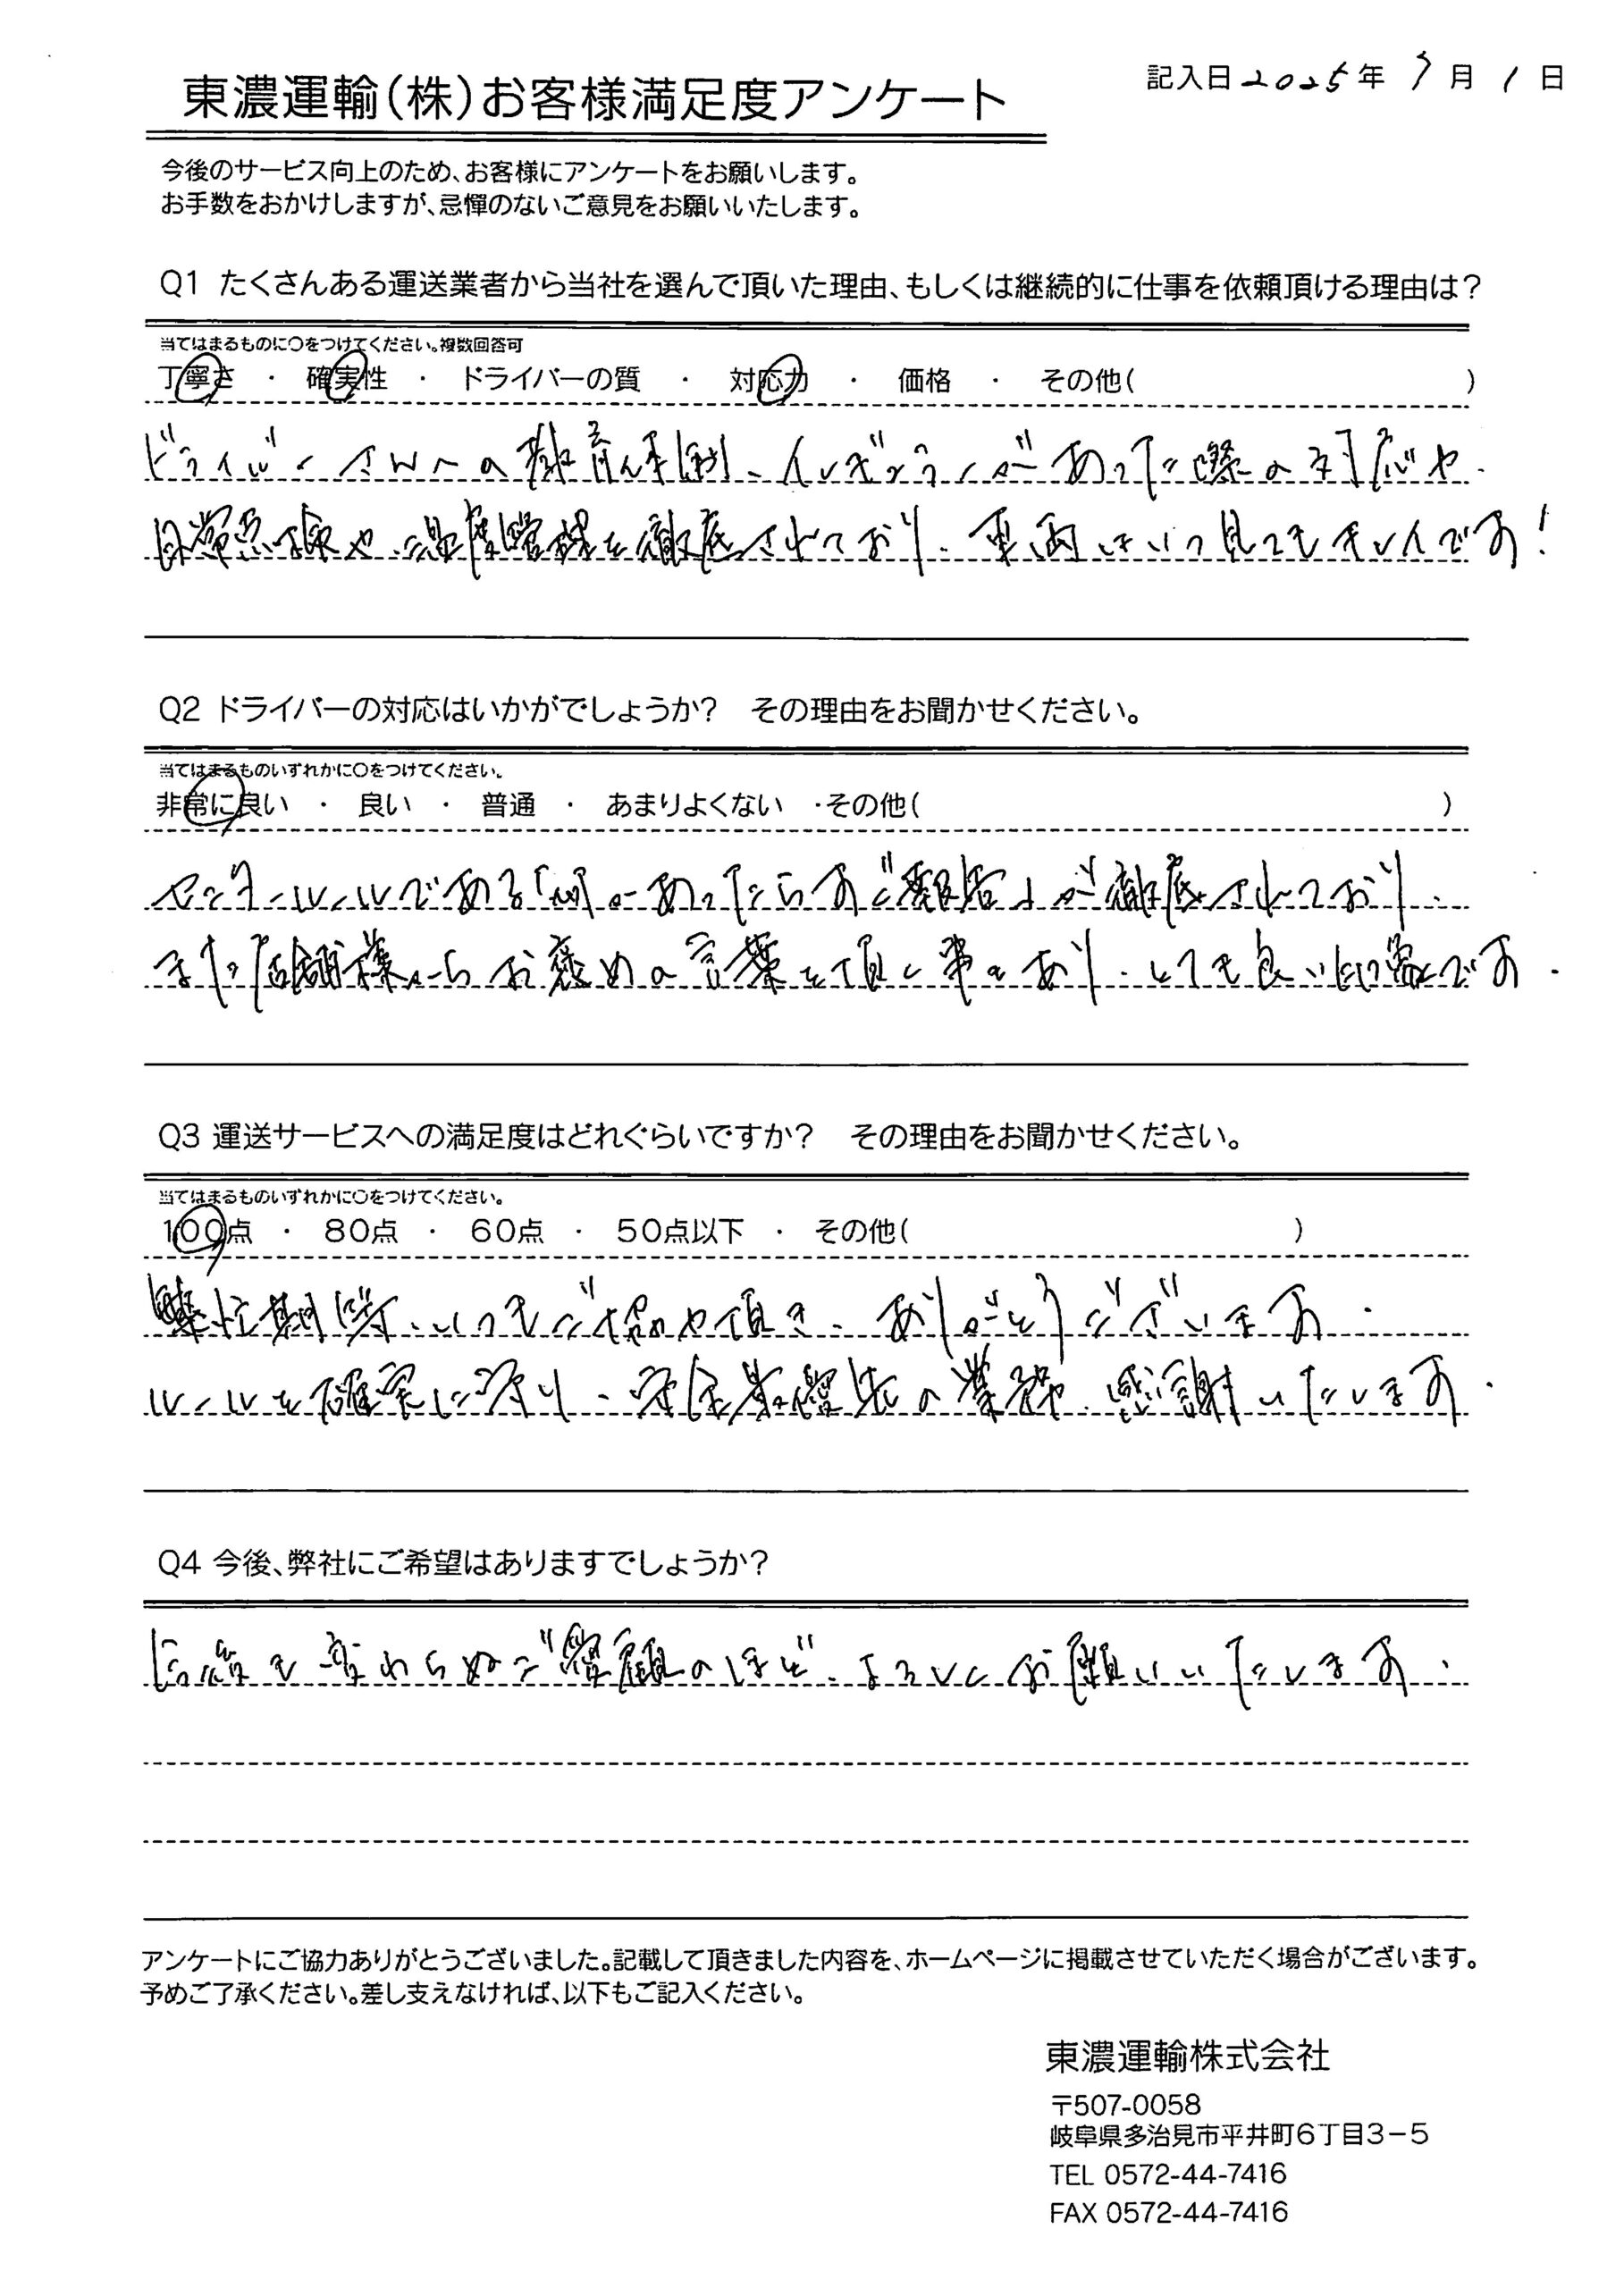 東濃運輸(株)お客様満足度アンケート
記入日 2025年 7月 1日
今後のサービス向上のため、お客様にアンケートをお願いします。
お手数をおかけしますが、忌憚のないご意見をお願いいたします。
Q1 たくさんある運送業者から当社を選んで頂いた理由、もしくは継続的に仕事を依頼頂ける理由は?
当てはまるものに○をつけてください。複数回答可
丁寧さ ・ 確実性 ・ ドライバーの質 ・ 対応力 ・ 価格 ・ その他( )
ドライバーさんへの教育体制、イレギュラーがあった際の対応や、
日常点検や温度管理を徹底されており、車両はいつ見てもキレイです!
Q2 ドライバーの対応はいかがでしょうか? その理由をお聞かせください。
当てはまるものいずれかに○をつけてください。
非常に良い ・ 良い ・ 普通 ・ あまりよくない ・その他( )
センタールールである「何かあったらすぐ報告」が徹底されており、
また店舗様からお褒めの言葉を頂く事もあり、とても良い印象です。
Q3 運送サービスへの満足度はどれぐらいですか? その理由をお聞かせください。
当てはまるものいずれかに○をつけてください。
100点 ・ 80点 ・ 60点 ・ 50点以下 ・ その他( )
繁忙期等、いつもご協力頂き、ありがとうございます。
ルールを確実に守り、安全最優先の業務、感謝いたします。
Q4 今後、弊社にご希望はありますでしょうか?
今後も変わらぬご愛顧のほど、よろしくお願いいたします。
アンケートにご協力ありがとうございました。記載して頂きました内容を、ホームページに掲載させていただく場合がございます。
予めご了承ください。差し支えなければ、以下もご記入ください。
東濃運輸株式会社
〒507-0058
岐阜県多治見市平井町6丁目3−5
TEL 0572-44-7416
FAX 0572-44-7416